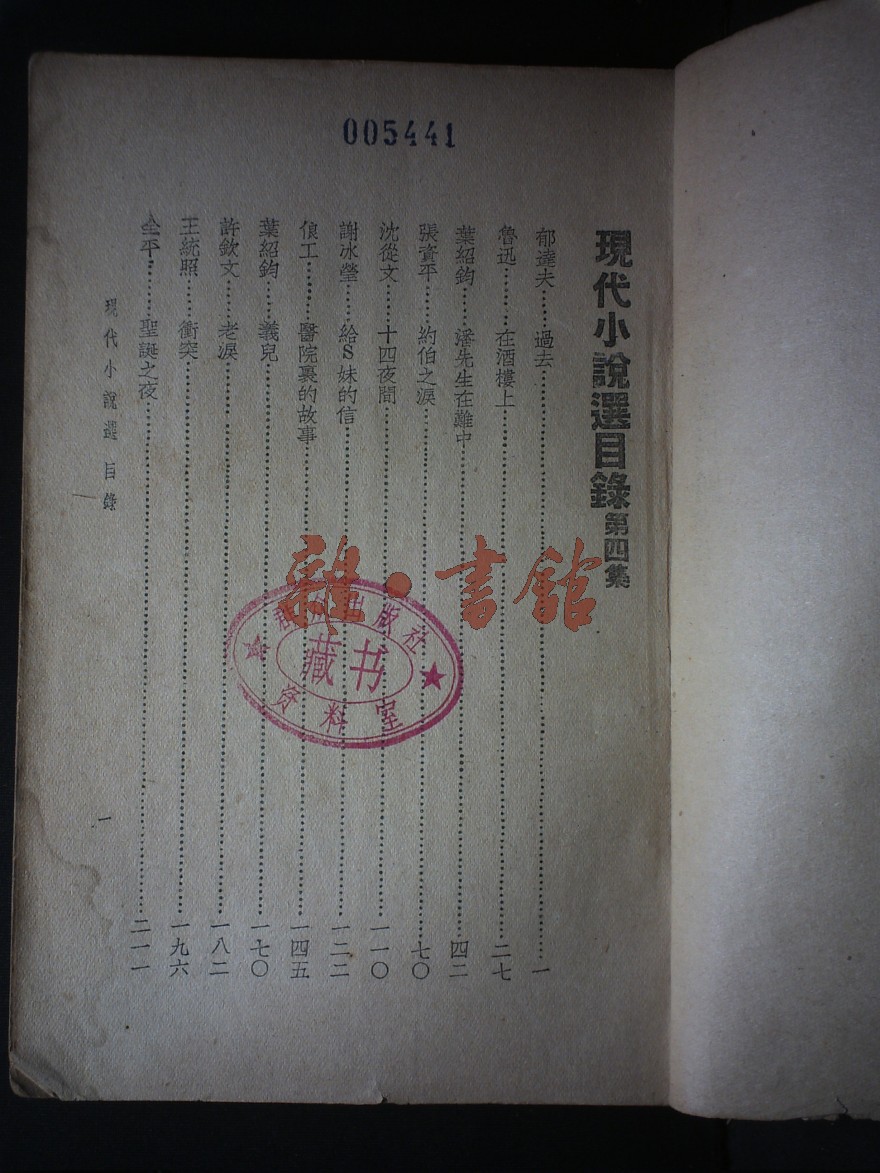 005441
現代小說選目錄 第四集
郁達夫……過去……一
魯迅……在酒樓上……二七
葉紹鈞……潘先生在難中……四二
張資平……約伯之淚……七〇
沈從文……十四夜間……一一〇
謝冰瑩……給S妹的信……一二二
俍工……醫院裏的故事……一四五
葉紹鈞……義兒……一七〇
許欽文……老淚……一八二
王統照……衝突……一九六
全平……聖誕之夜……二一一
現代小說選 目錄
一
雜·書館
出版社
藏书
资料室